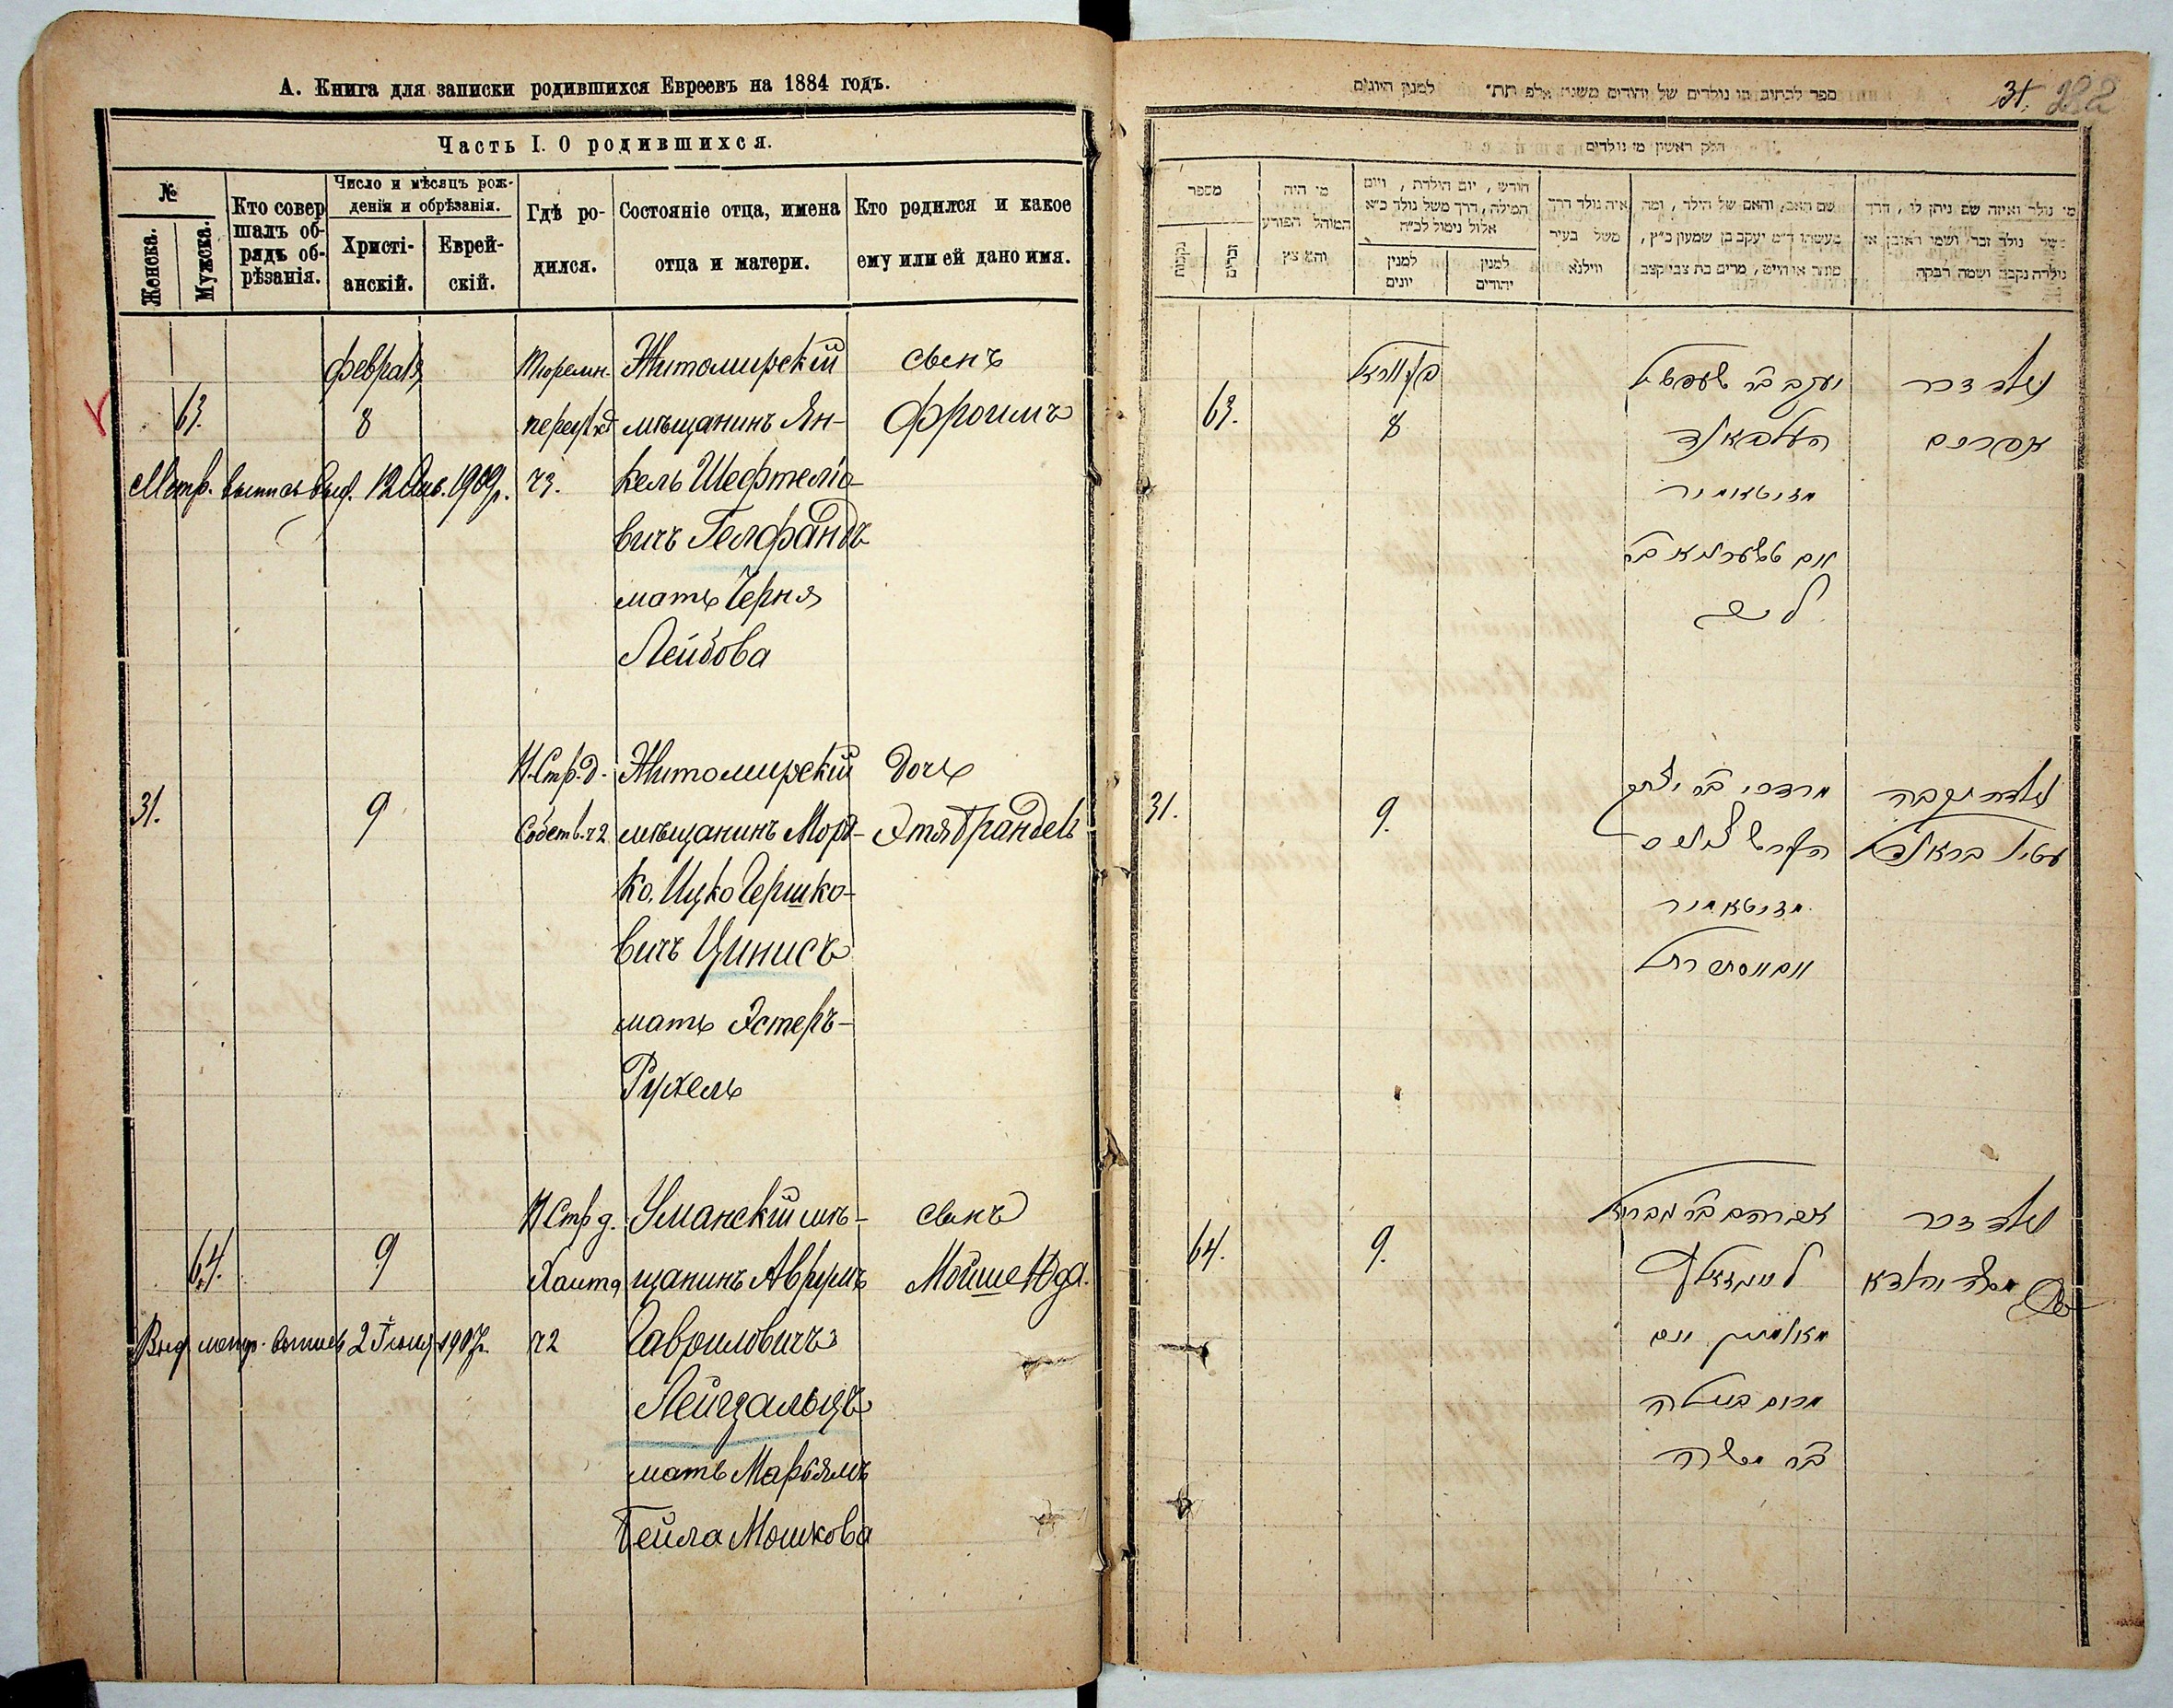 А. Книга для записки родившихся Евреевъ на 1884 годъ.
Часть I. О родившихся.
№
Женска.
Мужска.
Кто совер
шалъ об-
рядъ об-
рѣзанія.
Число и мѣсяцъ рож-
денія и обрѣзанія.
Христі-
анскій.
Еврей-
скій.
Гдѣ ро-
дился.
Состояніе отца, имена
отца и матери.
Кто родился и какое
ему или ей дано имя.
63.
Февраля
8
Тюремн.
ч3.
Житомирскій
мѣщанинъ Ян-
кель Шефтеліо-
вичъ Гелфандъ
мать Черня
Лейбова
сынъ
Фроимъ
Метр. выпись выд. 1909г.
31.
9
Н. Стр. д.
Собств. ч2
Житомирскій
мѣщанинъ Морд-
ко, Ицко Гершко-
вичъ Цинисъ
мать Эстеръ-
Рухель
дочь
Этя Брандель
64.
9
Н Стр д.
ч2
Уманскій мѣ-
щанинъ Аврумъ
Гавриловичъ
Лейзгальцъ
мать Марьямъ
Бейла Мошкова
сынъ
Мойше Юда.
Выд метр. выпись 2 1907г.
31.
ספר לכתוב מי נולדים של יהודים משנת אלף תת״ למנין היונים
חלק ראשון מי נולדים
מספר
נקבות
זכרים
מי היה
המוהל הפורע
והמוצץ
חודש, יום הולדת, ויום
המילה, דרך משל נולד כ״א
אלול נימול לכ״ה
למנין
יונים
למנין
יהודים
איה נולד דרך
משל בעיר
ווילנא
שם האב, והאם של הילד, ומה
מעשהו ד״מ יעקב בן שמעון כ״ץ,
סוחר או חייט, מרים בת צבי קצב
מי נולד ואיזה שם ניתן לו, דרך
משל נולד זכר ושמו ראובן או
נולדה נקבה ושמה רבקה
63.
8
יעקב ב״ר שעפטיל
העלפאנד
מזיטאמיר
נולד זכר
אפרים
31.
9.
מרדכי יצחק
מזיטאמיר
נולדה נקבה
64.
9.
אברהם ב״ר גבריאל
ב״ר משה
נולד זכר
משה יהודא